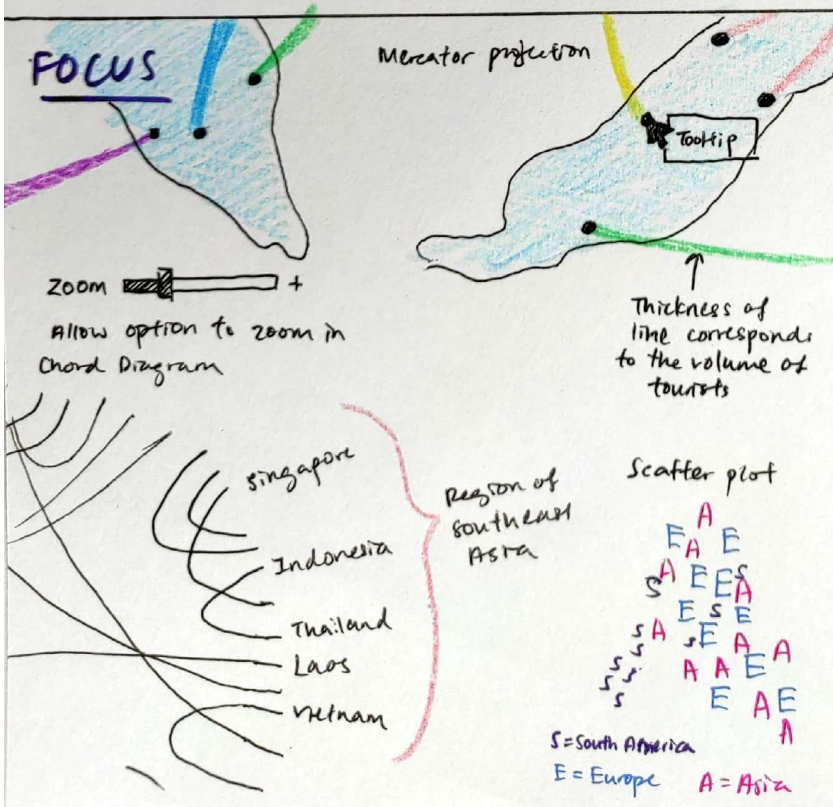 FOCUS
Mercator projection
Tooltip
Zoom +
Allow option to zoom in
Chord Diagram
Thickness of
line corresponds
to the volume of
tourists
Singapore
Indonesia
Thailand
Laos
Vietnam
Region of
Southeast
Asia
Scatter plot
A
E E
A
A E E S
S A
E S E
S A S E A A
S
S S A A E
S S E A E
S A
S = South America
E = Europe A = Asia